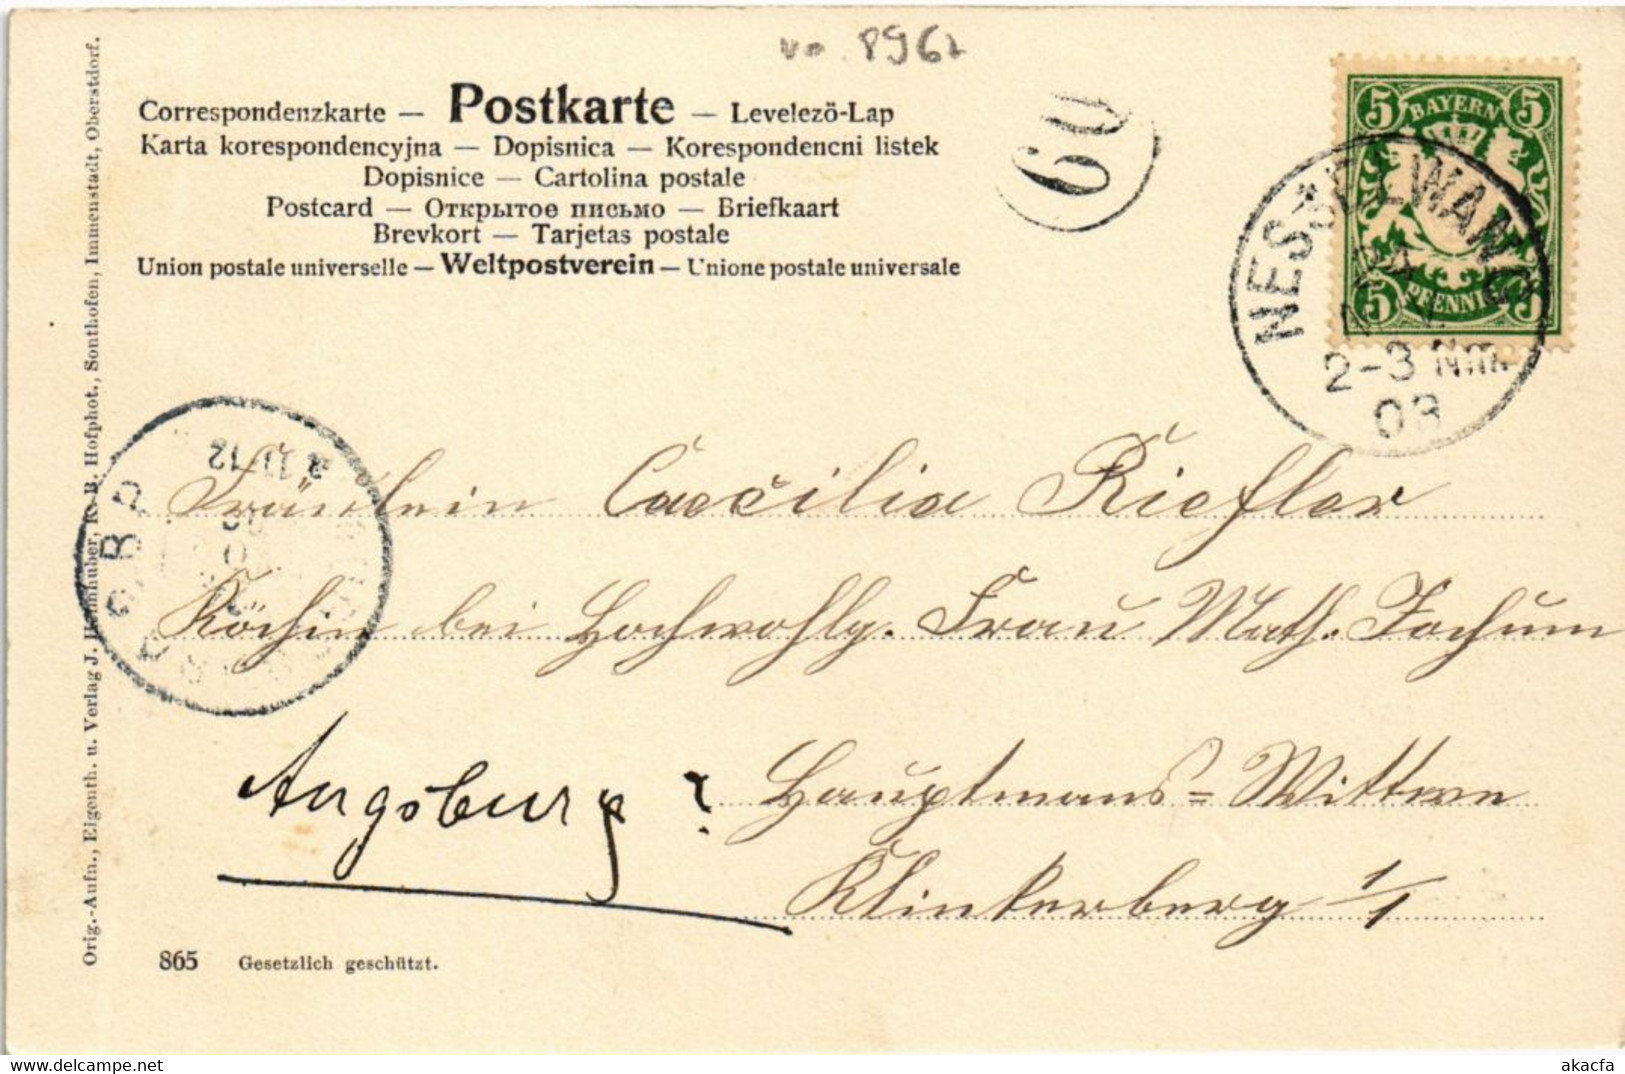 vo. 8961
Correspondenzkarte — Postkarte — Levelező-Lap
Karta korespondencyjna — Dopisnica — Korespondencni listek
Dopisnice — Cartolina postale
Postcard — Открытое письмо — Briefkaart
Brevkort — Tarjetas postale
Union postale universelle — Weltpostverein — Unione postale universale
60
5 BAYERN 5
5 PFENNIG 5
NESSELWANG
2-3 Nm.
03
Orig.-Aufn., Eigenth. u. Verlag J. Heimhuber, K. B. Hofphot., Sonthofen, Immenstadt, Oberstdorf.
Fräulein Caecilia Riefler
Köchin bei Hochwohlg. Frau Math. Jochum
Augsburg ? Hauptmans=Wittwe
Klinkerberg 1/1
865 Gesetzlich geschützt.
www.delcampe.net
akacfa